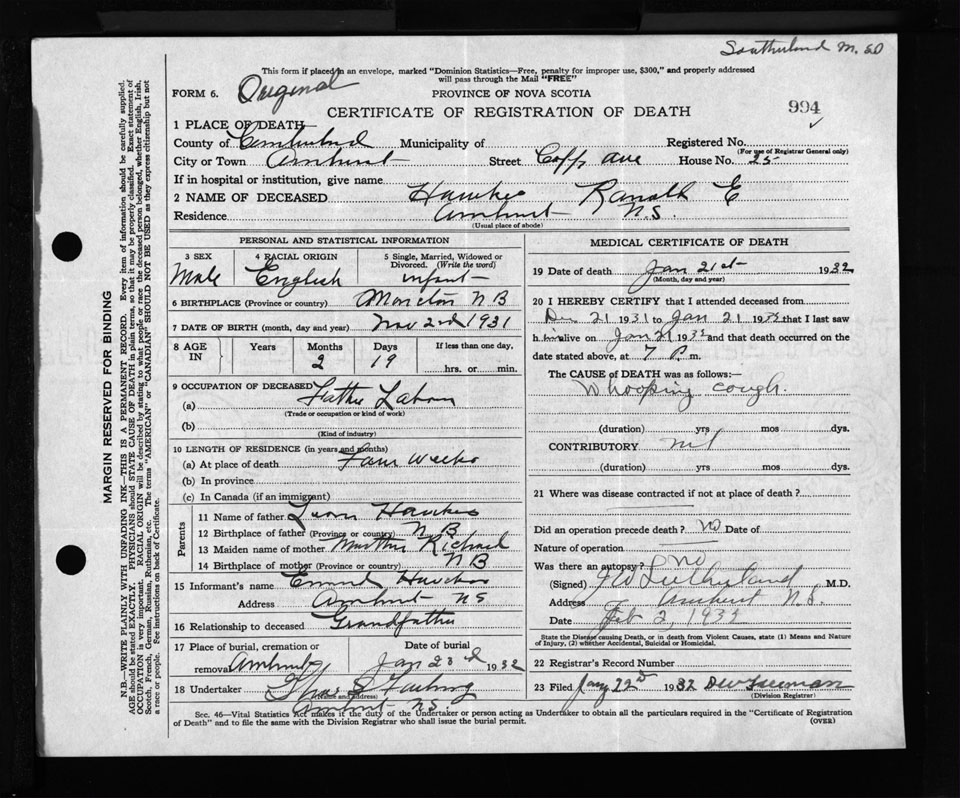 Southerland M.D
This form if placed in an envelope, marked "Dominion Statistics—Free, penalty for improper use, $300," and properly addressed
will pass through the Mail "FREE"
FORM 6. Original
PROVINCE OF NOVA SCOTIA
CERTIFICATE OF REGISTRATION OF DEATH
994
1 PLACE OF DEATH
County of Cumberland Municipality of Registered No.
(For use of Registrar General only)
City or Town Amherst Street Copp Ave House No. 25
If in hospital or institution, give name
2 NAME OF DECEASED Hawkes E
Residence Amherst N.S.
(Usual place of abode)
PERSONAL AND STATISTICAL INFORMATION
3 SEX 4 RACIAL ORIGIN 5 Single, Married, Widowed or
Divorced. (Write the word)
Male English infant
6 BIRTHPLACE (Province or country) Moncton N B
7 DATE OF BIRTH (month, day and year) Nov 2nd 1931
8 AGE IN Years Months Days If less than one day,
2 19 hrs. or min.
9 OCCUPATION OF DECEASED Father
(a)
(Trade or occupation or kind of work)
(b)
(Kind of industry)
10 LENGTH OF RESIDENCE (in years and months)
(a) At place of death Four Weeks
(b) In province
(c) In Canada (if an immigrant)
Parents
11 Name of father Hawkes
12 Birthplace of father (Province or country) N B
13 Maiden name of mother Richard
14 Birthplace of mother (Province or country) N B
15 Informant's name Hawkes
Address Amherst NS
16 Relationship to deceased Grandfather
17 Place of burial, cremation or
removal Amherst
Date of burial
Jan 23rd 1932
18 Undertaker
(Name and address)
Amherst N.S.
MEDICAL CERTIFICATE OF DEATH
19 Date of death Jan 21st 1932
(Month, day and year)
20 I HEREBY CERTIFY that I attended deceased from
Dec 21 1931 to Jan 21 1932 that I last saw
h im alive on Jan 21 1932 and that death occurred on the
date stated above, at 7 P. m.
The CAUSE of DEATH was as follows:—
Whooping cough.
(duration) yrs mos dys.
CONTRIBUTORY nil
(duration) yrs. mos dys.
21 Where was disease contracted if not at place of death?
Did an operation precede death? no Date of
Nature of operation
Was there an autopsy? no
(Signed) Sutherland M.D.
Address Amherst N.S.
Date Feb 2, 1932
State the Disease causing Death, or in death from Violent Causes, state (1) Means and Nature
of Injury, (2) whether Accidental, Suicidal or Homicidal.
22 Registrar's Record Number
23 Filed Jany 22nd 1932
(Division Registrar)
Sec. 46—Vital Statistics Act makes it the duty of the Undertaker or person acting as Undertaker to obtain all the particulars required in the "Certificate of Registration
of Death" and to file the same with the Division Registrar who shall issue the burial permit.
(OVER)
MARGIN RESERVED FOR BINDING
N.B.—WRITE PLAINLY WITH UNFADING INK—THIS IS A PERMANENT RECORD. Every item of information should be carefully supplied.
AGE should be stated EXACTLY. PHYSICIANS should STATE CAUSE OF DEATH in plain terms, so that it may be properly classified. Exact statement of
OCCUPATION is very important. RACIAL ORIGIN will be described by stating to what people or race the deceased person belonged, whether English, Irish,
Scotch, French, German, Russian, Ruthenian, etc. The terms "AMERICAN" or "CANADIAN" SHOULD NOT BE USED as they express citizenship but not
a race or people. See instructions on back of Certificate.